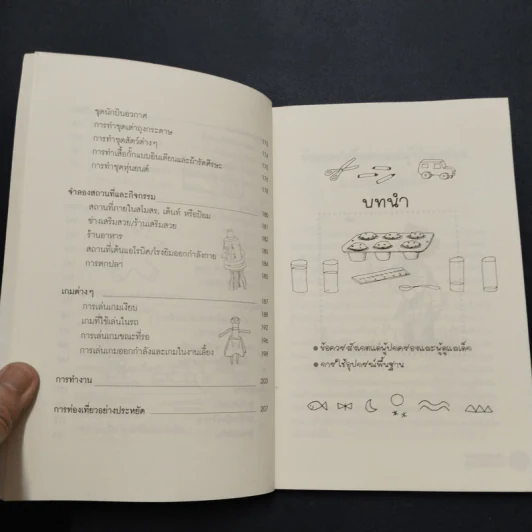 ชุดนักบินอวกาศ
การทำชุดเต่าถุงกระดาษ
การทำชุดสัตว์ต่างๆ
การทำเสื้อกั๊กแบบอินเดียนและผ้ารัดศีรษะ
การทำชุดหุ่นยนต์
จำลองสถานที่และกิจกรรม 180
สถานที่ภายในสโมสร, เต็นท์ หรือป้อม
ช่างเสริมสวย/ร้านเสริมสวย
ร้านอาหาร
สถานที่เต้นแอโรบิค/โรงยิมออกกำลังกาย
การตกปลา 185
เกมต่างๆ 187
การเล่นเกมเงียบ
เกมที่ใช้เล่นในรถ
การเล่นเกมขณะที่รอ
การเล่นเกมออกกำลังและเกมในงานเลี้ยง 198
การทำงาน 203
การท่องเที่ยวอย่างประหยัด 207
บทนำ
• ข้อควรสังเกตแด่ผู้ปกครองและผู้ดูแลเด็ก
• การใช้อุปกรณ์พื้นฐาน